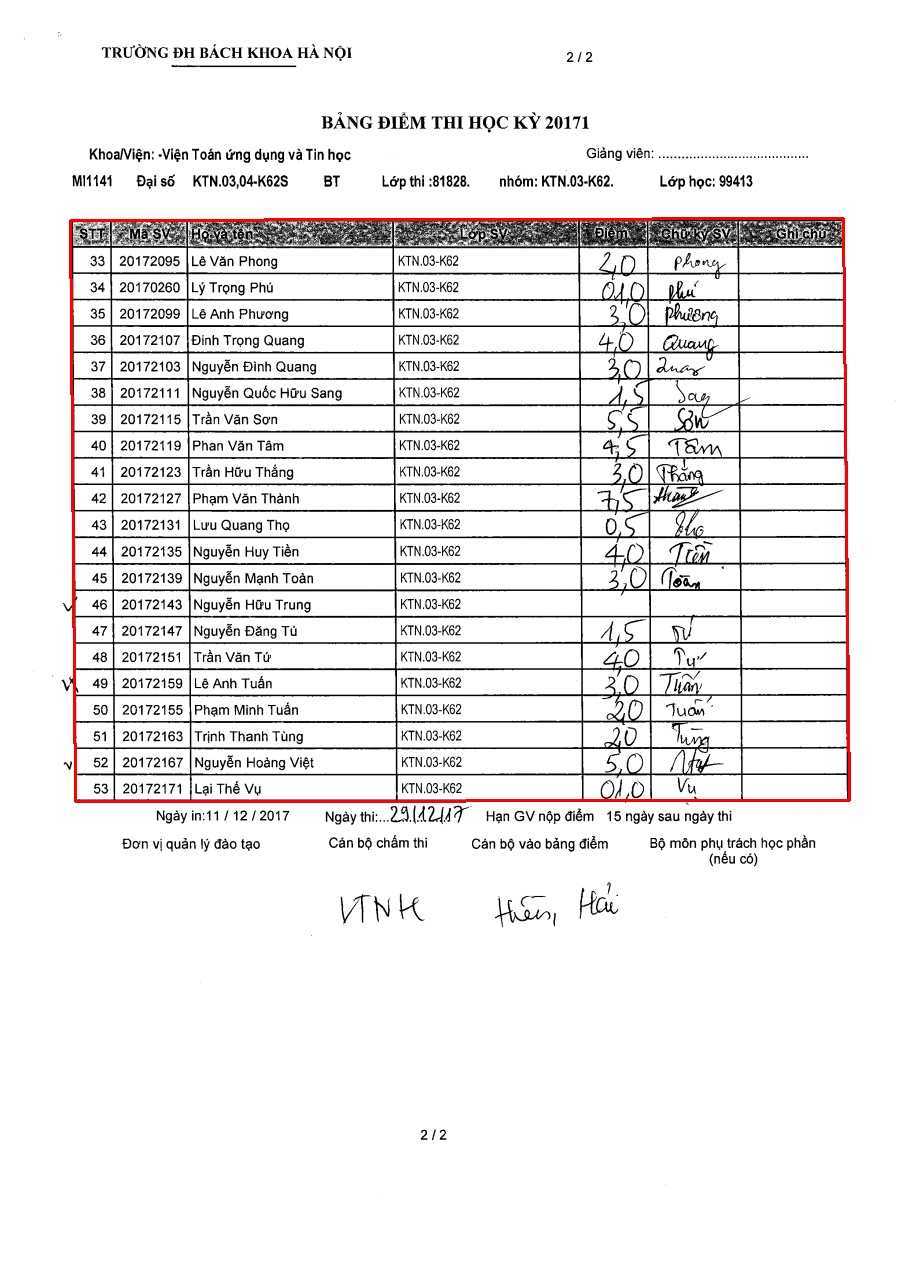 TRƯỜNG ĐH BÁCH KHOA HÀ NỘI
2 / 2
BẢNG ĐIỂM THI HỌC KỲ 20171
Khoa/Viện: -Viện Toán ứng dụng và Tin học Giảng viên: ........................................
MI1141 Đại số KTN.03,04-K62S BT Lớp thi :81828. nhóm: KTN.03-K62. Lớp học: 99413
STT Mã SV Họ và tên Lớp SV Điểm Chữ ký SV Ghi chú
33 20172095 Lê Văn Phong KTN.03-K62 2,0 Phong
34 20170260 Lý Trọng Phú KTN.03-K62 01,0 Phú
35 20172099 Lê Anh Phương KTN.03-K62 3,0 Phương
36 20172107 Đinh Trọng Quang KTN.03-K62 4,0 Quang
37 20172103 Nguyễn Đình Quang KTN.03-K62 3,0 Quang
38 20172111 Nguyễn Quốc Hữu Sang KTN.03-K62 1,5 Sang
39 20172115 Trần Văn Sơn KTN.03-K62 5,5 Sơn
40 20172119 Phan Văn Tâm KTN.03-K62 4,5 Tâm
41 20172123 Trần Hữu Thắng KTN.03-K62 3,0 Thắng
42 20172127 Phạm Văn Thành KTN.03-K62 7,5 Thành
43 20172131 Lưu Quang Thọ KTN.03-K62 0,5 Thọ
44 20172135 Nguyễn Huy Tiền KTN.03-K62 4,0 Tiền
45 20172139 Nguyễn Mạnh Toàn KTN.03-K62 3,0 Toàn
46 20172143 Nguyễn Hữu Trung KTN.03-K62
47 20172147 Nguyễn Đăng Tú KTN.03-K62 1,5 Tú
48 20172151 Trần Văn Tứ KTN.03-K62 4,0 Tứ
49 20172159 Lê Anh Tuấn KTN.03-K62 3,0 Tuấn
50 20172155 Phạm Minh Tuấn KTN.03-K62 2,0 Tuấn
51 20172163 Trịnh Thanh Tùng KTN.03-K62 2,0 Tùng
52 20172167 Nguyễn Hoàng Việt KTN.03-K62 5,0
53 20172171 Lại Thế Vụ KTN.03-K62 01,0 Vụ
Ngày in:11 / 12 / 2017 Ngày thi:...29/12/17 Hạn GV nộp điểm 15 ngày sau ngày thi
Đơn vị quản lý đào tạo Cán bộ chấm thi Cán bộ vào bảng điểm Bộ môn phụ trách học phần
(nếu có)
VTNH Hiền, Hải
2 / 2